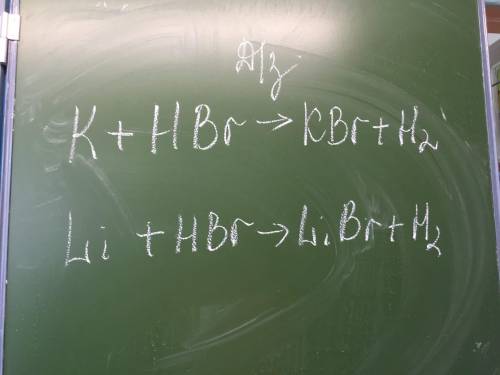 Д/з
K + HBr → KBr + H₂
Li + HBr → LiBr + H₂